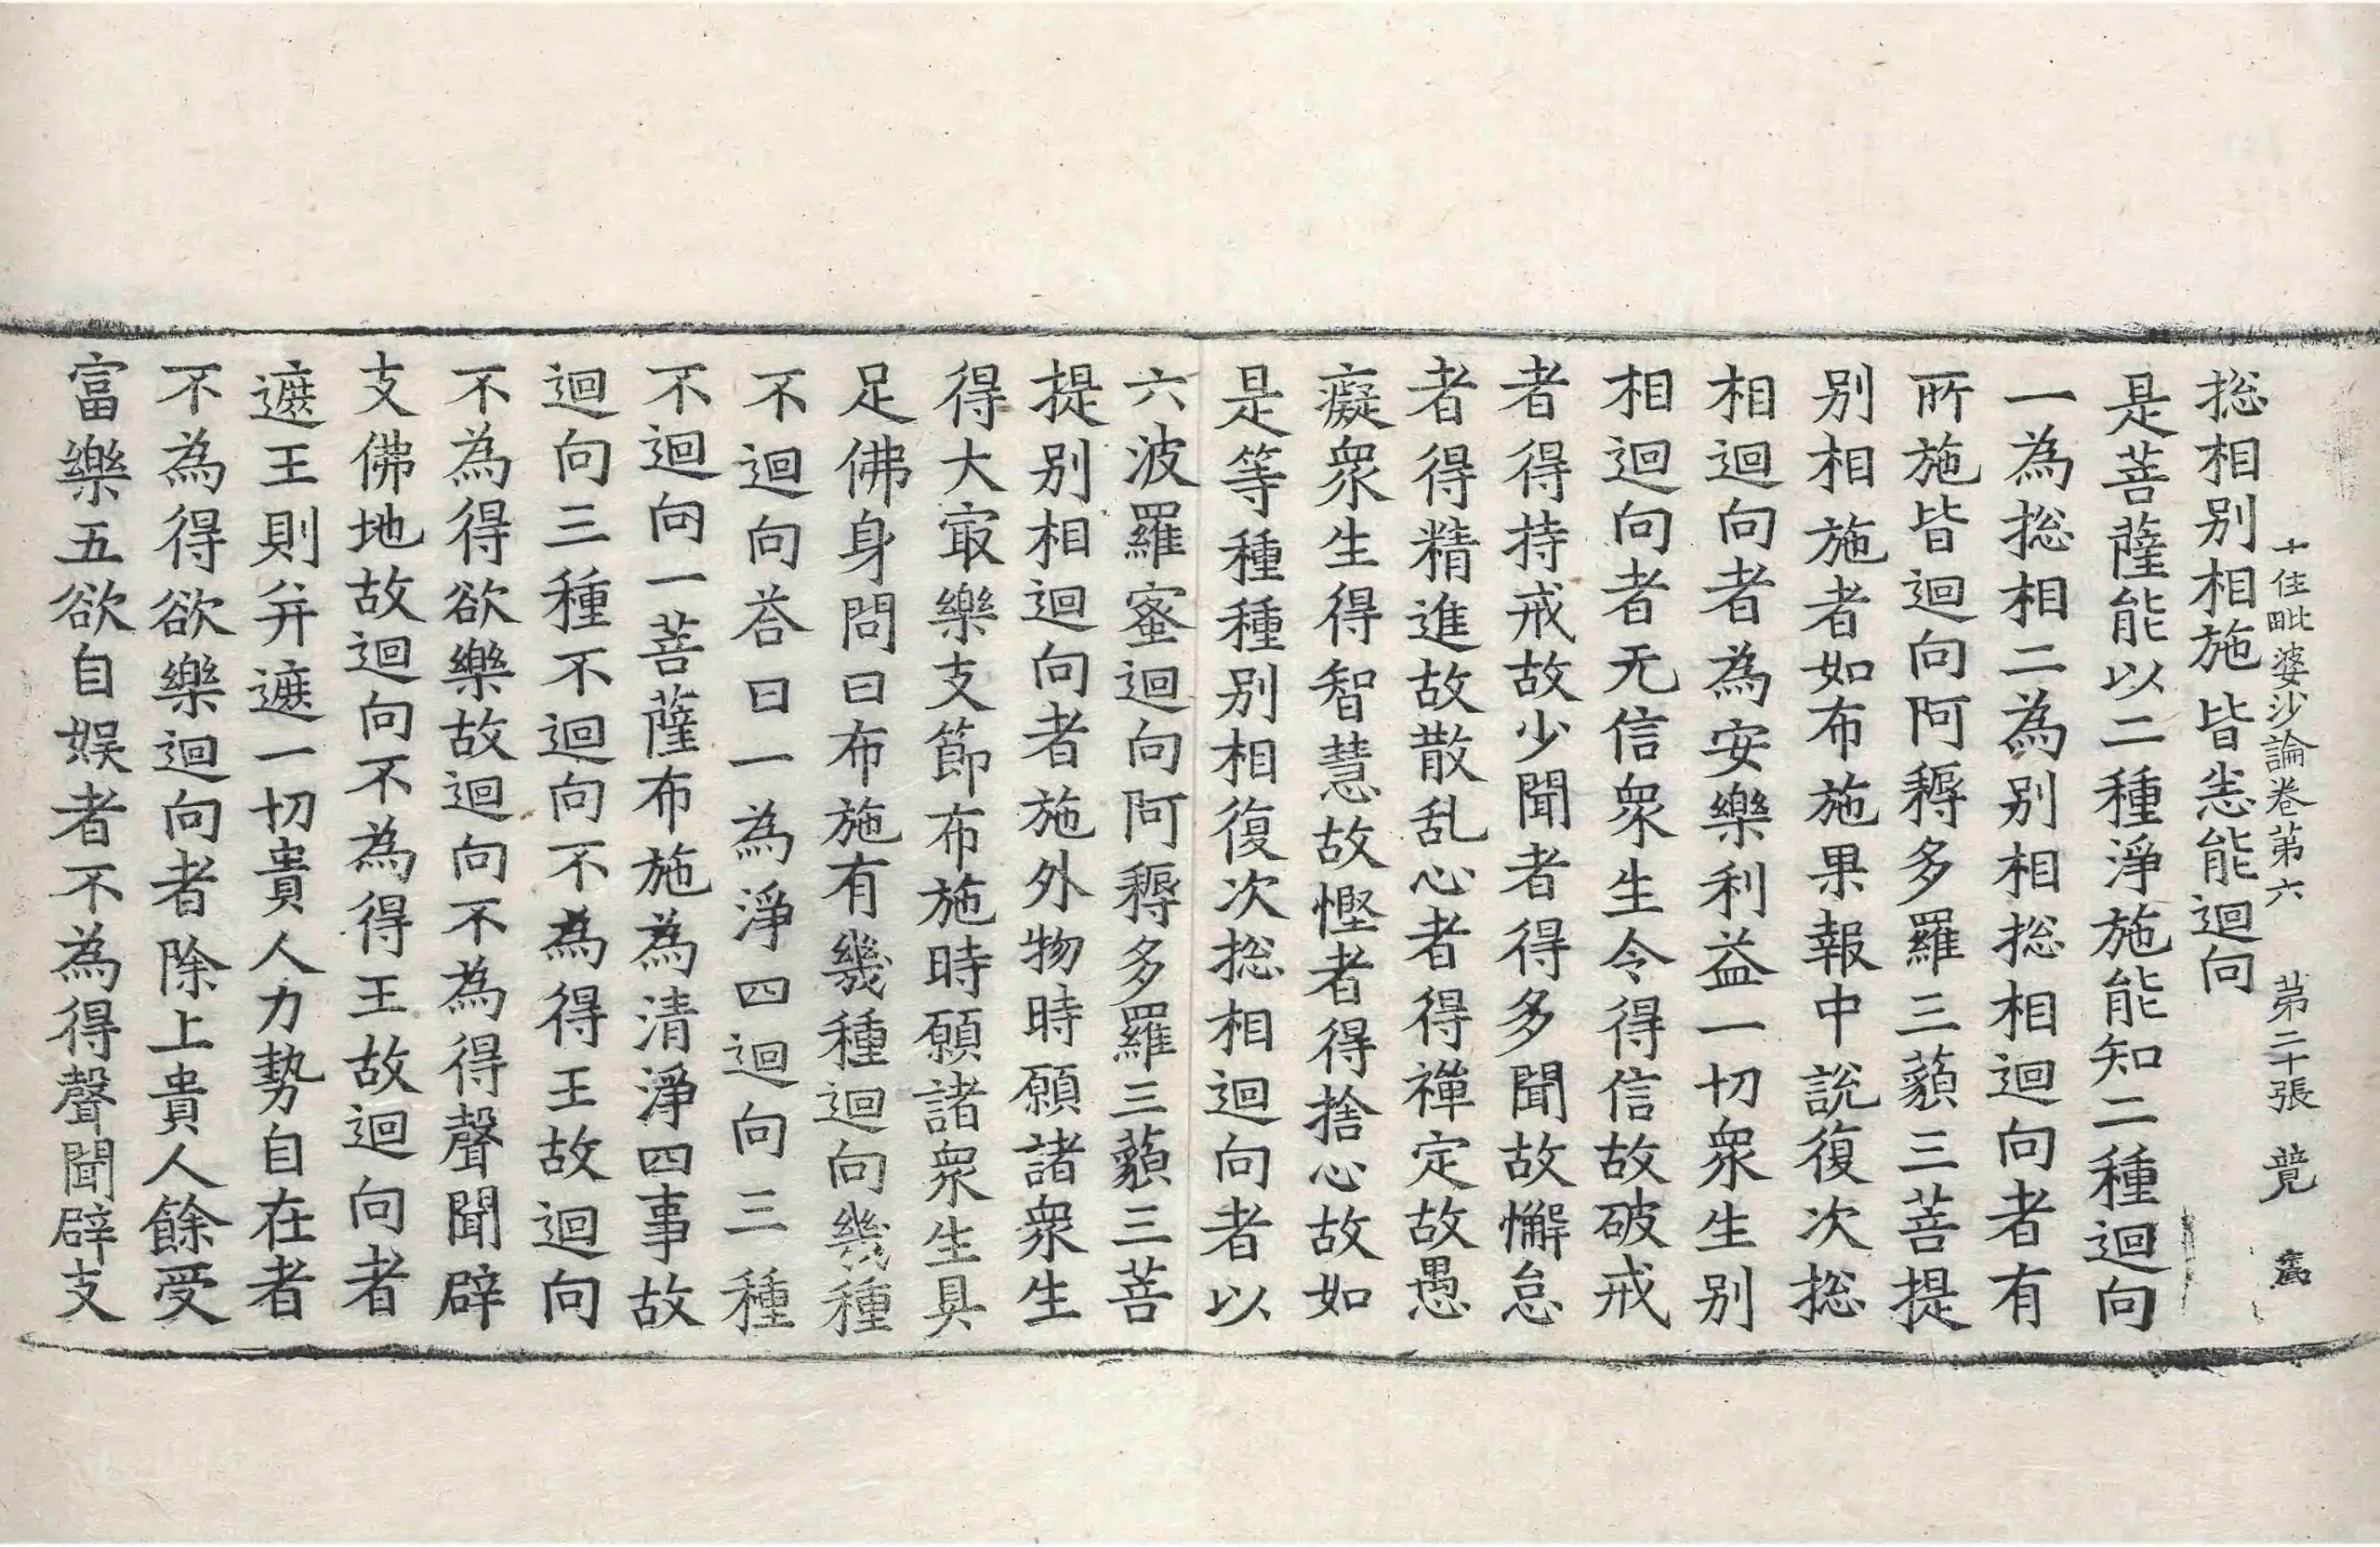 十住毗婆沙論卷第六　第二十張　覺
㧾相別相施皆恙能迴向
是菩薩能以二種淨施能知二種迴向
一為㧾相二為別相㧾相迴向者有
所施皆迴向阿耨多羅三藐三菩提
別相施者如布施果報中說復次㧾
相迴向者為安樂利益一切衆生別
相迴向者无信衆生令得信故破戒
者得持戒故少聞者得多聞故懈怠
者得精進故散乱心者得禪定故愚
癡衆生得智慧故慳者得捨心故如
是等種種別相復次㧾相迴向者以
六波羅蜜迴向阿耨多羅三藐三菩
提別相迴向者施外物時願諸衆生
得大㝡樂支節布施時願諸衆生具
足佛身問曰布施有幾種迴向幾種
不迴向荅曰一為淨四迴向三種
不迴向一菩薩布施為清淨四事故
迴向三種不迴向不為得王故迴向
不為得欲樂故迴向不為得聲聞辟
支佛地故迴向不為得王故迴向者
遮王則并遮一切貴人力勢自在者
不為得欲樂迴向者除上貴人餘受
富樂五欲自娛者不為得聲聞辟支